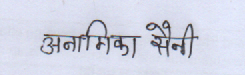 अनामिका सैनी